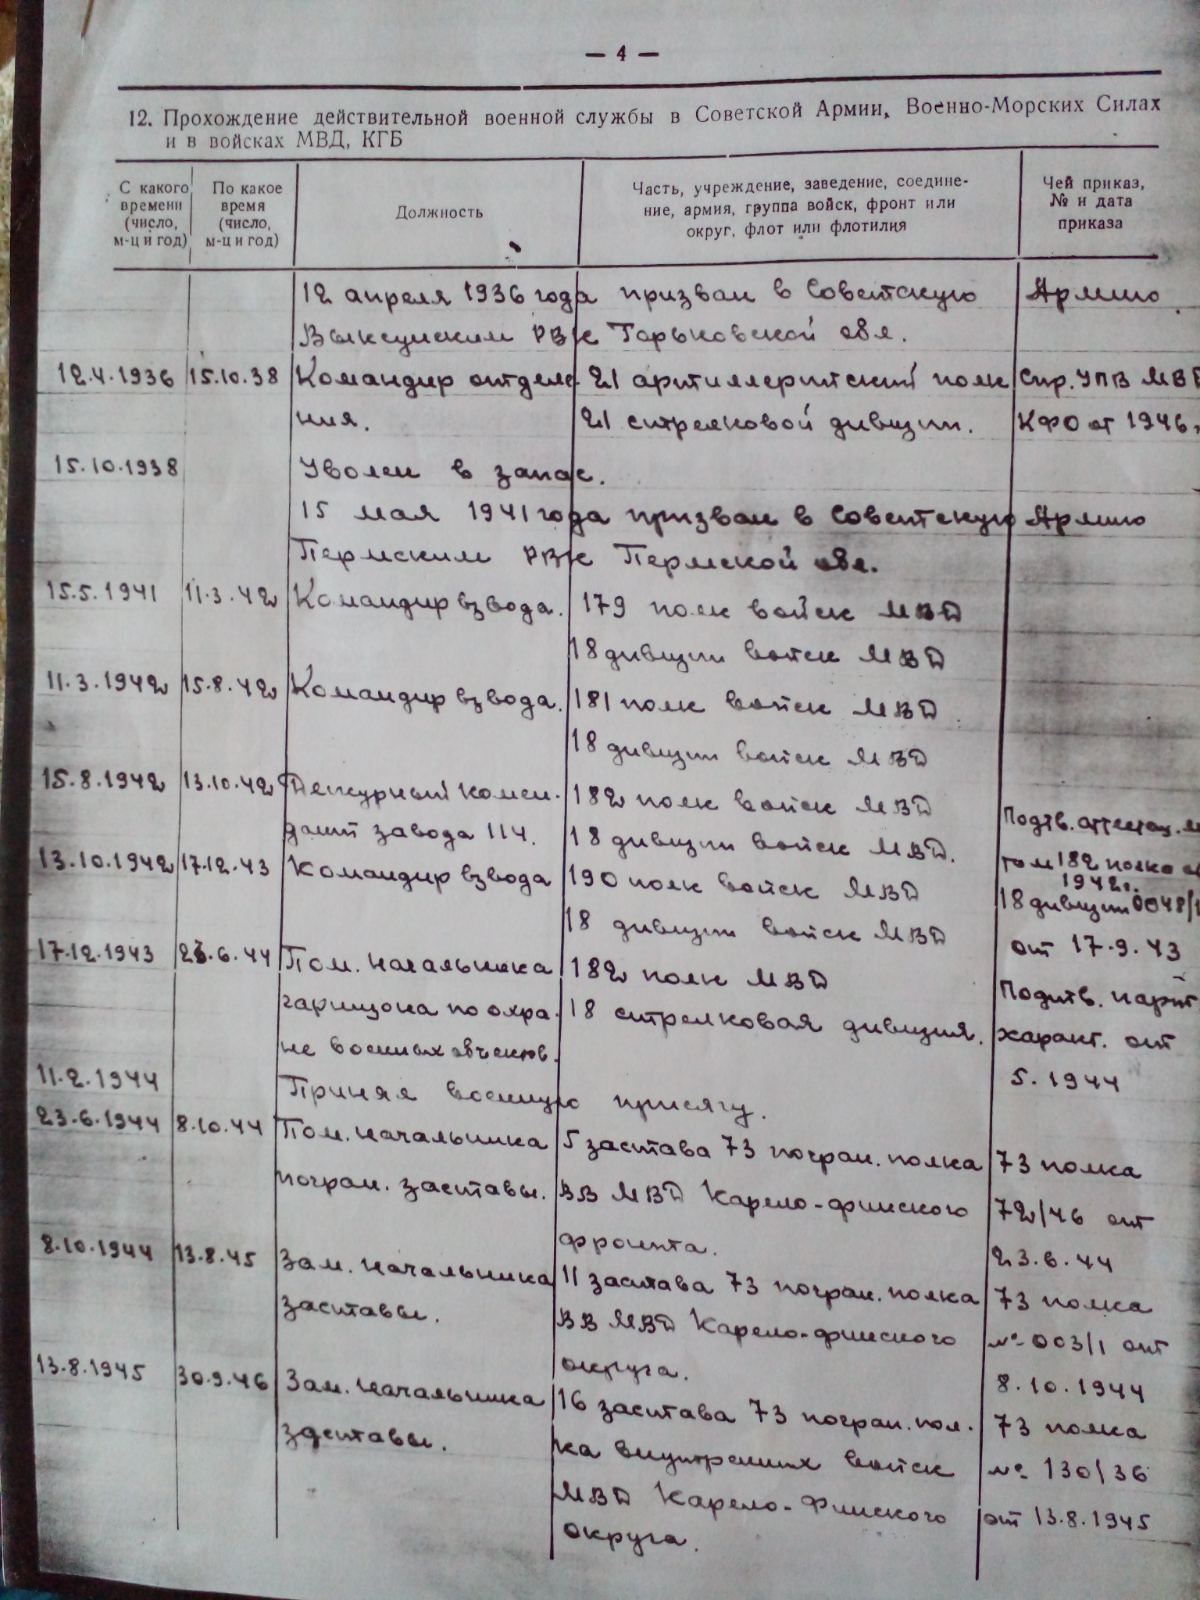 — 4 —
12. Прохождение действительной военной службы в Советской Армии, Военно-Морских Силах
и в войсках МВД, КГБ
С какого времени (число, м-ц и год)
По какое время (число, м-ц и год)
Должность
Часть, учреждение, заведение, соедине-
ние, армия, группа войск, фронт или
округ, флот или флотилия
Чей приказ,
№ и дата
приказа
12 апреля 1936 года призван в Советскую Армию
Выксунским РВК Горьковской обл.
12.4.1936 15.10.38 Командир отделе- 21 артиллерийский полк Спр. УПВ МВД
ния. 21 стрелковой дивизии. КФО от 1946г.
15.10.1938 Уволен в запас.
15 мая 1941 года призван в Советскую Армию
Пермским РВК Пермской обл.
15.5.1941 11.3.42 Командир взвода. 179 полк войск МВД
18 дивизии войск МВД
11.3.1942 15.8.42 Командир взвода. 181 полк войск МВД
18 дивизии войск МВД
15.8.1942 13.10.42 Дежурный комен- 182 полк войск МВД
дант завода 114. 18 дивизии войск МВД. Подтв. аттестац.
13.10.1942 17.12.43 Командир взвода 190 полк войск МВД 182 полка
1942г.
18 дивизии войск МВД 18 дивизии 0048/1
17.12.1943 23.6.44 Пом. начальника 182 полк МВД от 17.9.43
гарнизона по охра- 18 стрелковая дивизия. Подтв. парт
не военных объектов. характ. от
11.2.1944 Принял военную присягу. 5.1944
23.6.1944 8.10.44 Пом. начальника 5 застава 73 погран. полка 73 полка
погран. заставы. ВВ МВД Карело-финского 72/46 от
фронта. 23.6.44
8.10.1944 13.8.45 Зам. начальника 11 застава 73 погран. полка 73 полка
заставы. ВВ МВД Карело-финского № 003/1 от
округа. 8.10.1944
13.8.1945 30.9.46 Зам. начальника 16 застава 73 погран. пол- 73 полка
заставы. ка внутренних войск № 130/36
МВД Карело-Финского от 13.8.1945
округа.